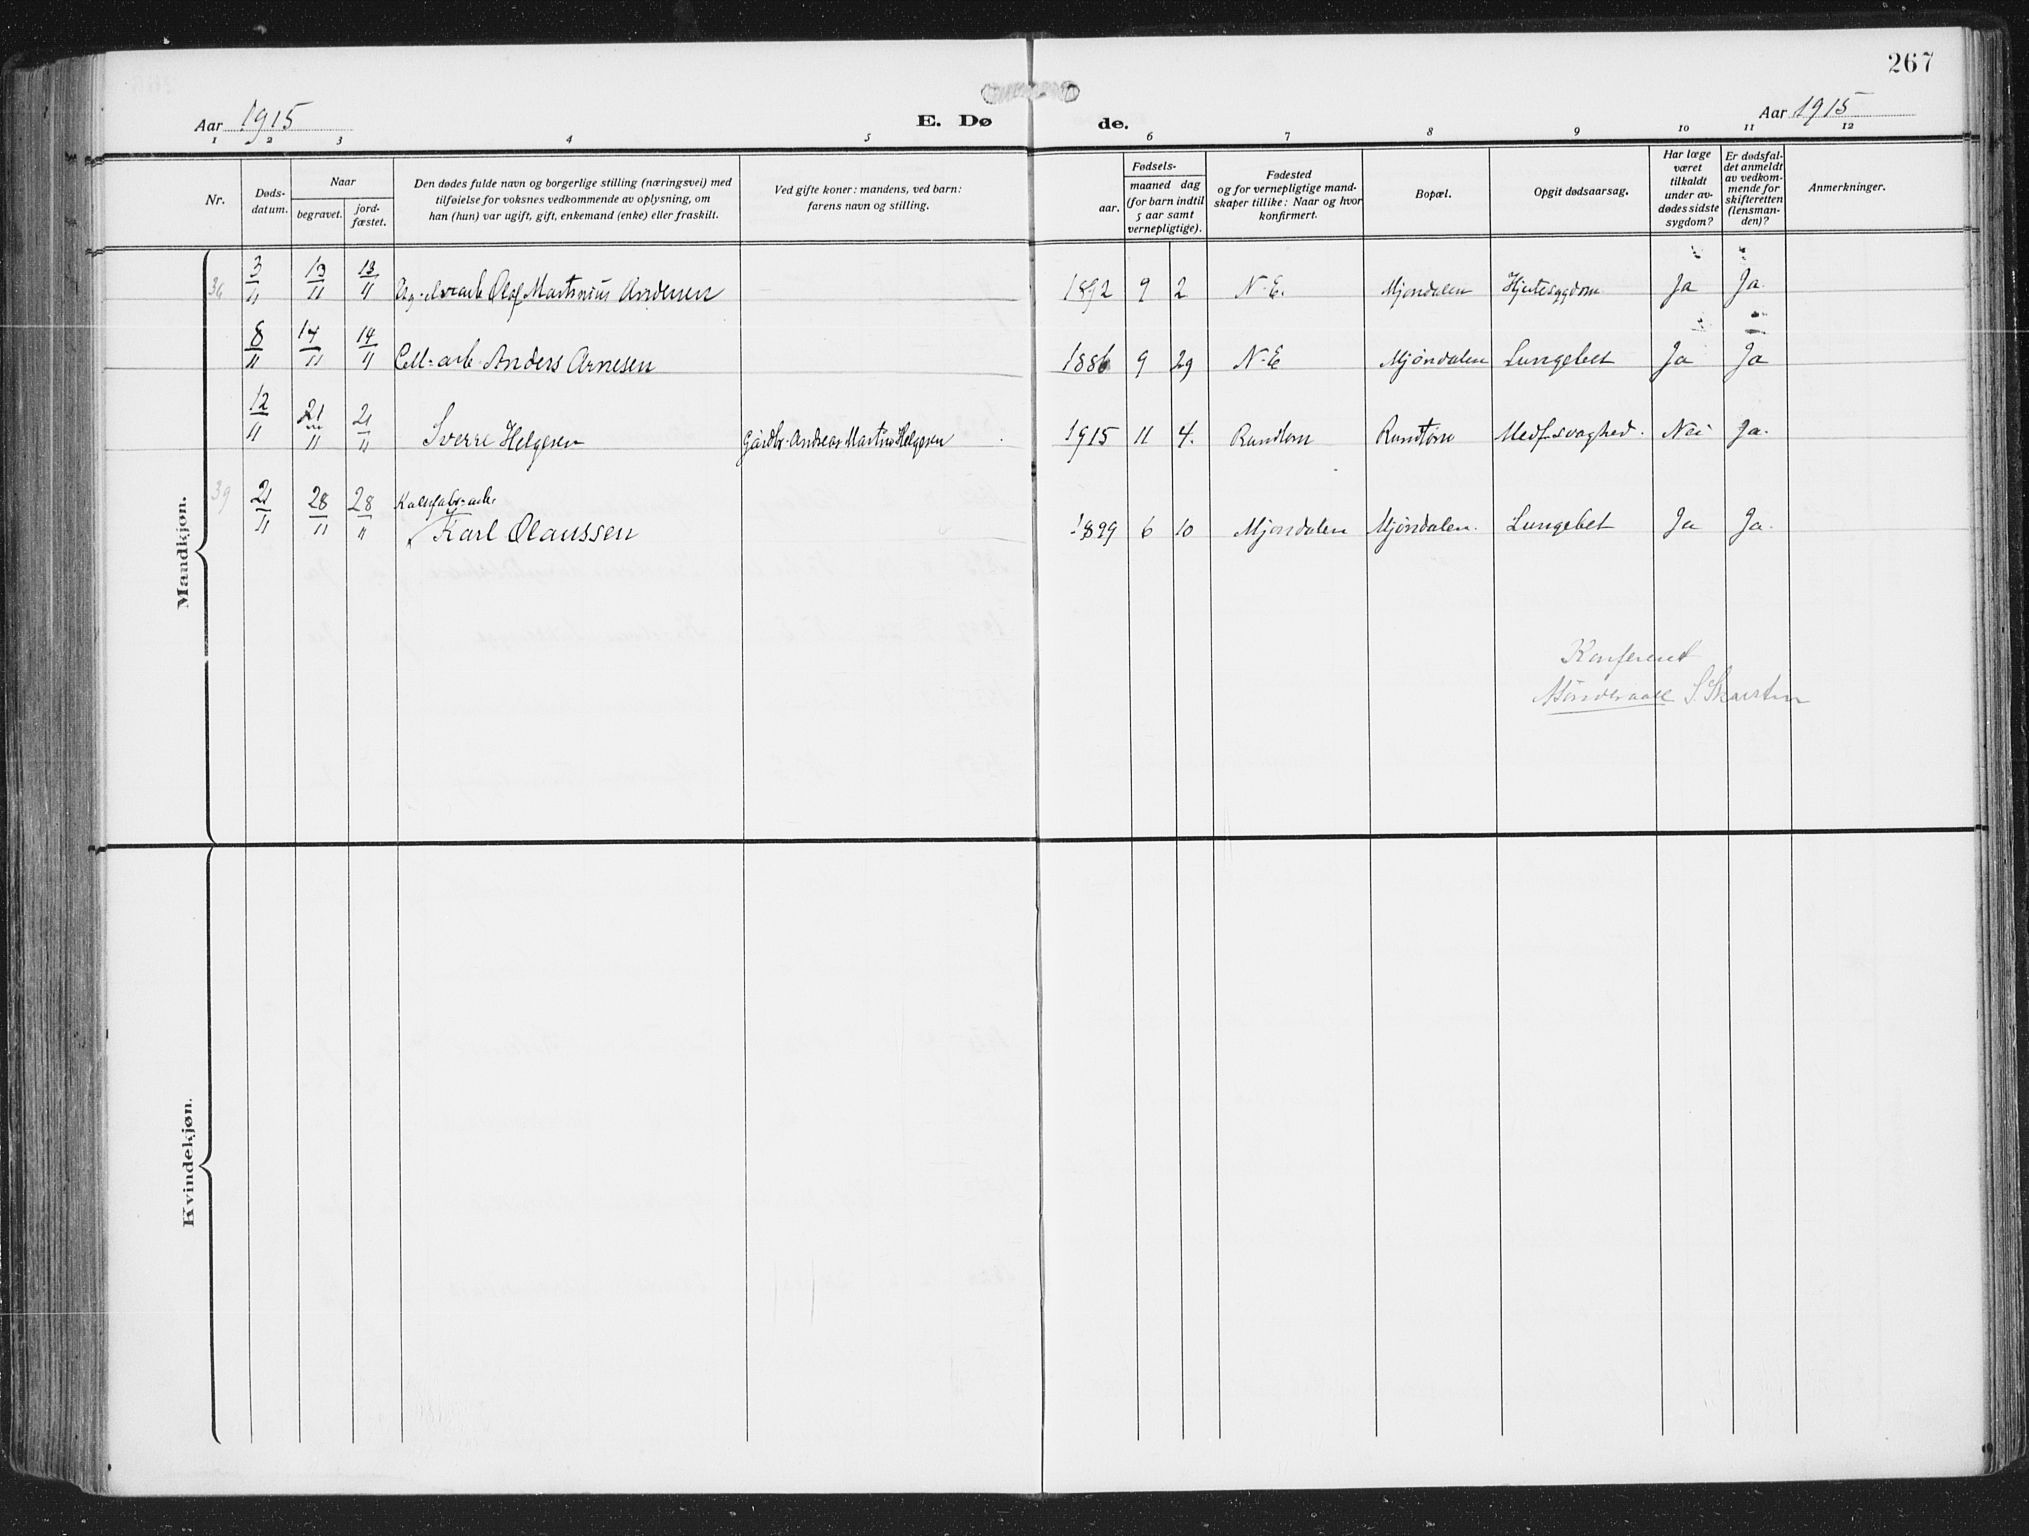 267
Aar 1915
E. Dø
de.
Aar 1915
1 2 3 4 5 6 7 8 9 10 11 12
Nr.
Døds-
datum.
Naar
begravet.
jord-
fæstet.
Den dødes fulde navn og borgerlige stilling (næringsvei) med
tilføielse for voksnes vedkommende av oplysning, om
han (hun) var ugift, gift, enkemand (enke) eller fraskilt.
Ved gifte koner: mandens, ved barn:
farens navn og stilling.
aar.
Fødsels-
maaned dag
(for barn indtil
5 aar samt
vernepligtige).
Fødested
og for vernepligtige mand-
skaper tillike: Naar og hvor
konfirmert.
Bopæl.
Opgit dødsaarsag.
Har læge
været
tilkaldt
under av-
dødes sidste
sygdom?
Er dødsfal-
det anmeldt
av vedkom-
mende for
skifteretten
(lensman-
den)?
Anmerkninger.
Mandkjøn.
36 3/11 13/11 13/11 Olaf Martinius Andersen 1892 9 2 N-E. Mjøndalen Hjertesygdom Ja Ja.
8/11 14/11 14/11 Cell-arb. Anders Arnesen 1886 9 29 N-E Mjøndalen Lungebet Ja Ja
12/11 21/11 21/11 Sverre Helgesen Gårdbr. Andreas Martin Helgesen 1915 11 4. Rundtom Rundtom Medf. svaghed. Nei Ja.
39 21/11 28/11 28/11 Karl Olaussen 1899 6 10 Mjøndalen Mjøndalen. Lungebet Ja Ja.
Konfereret
Kvindekjøn.